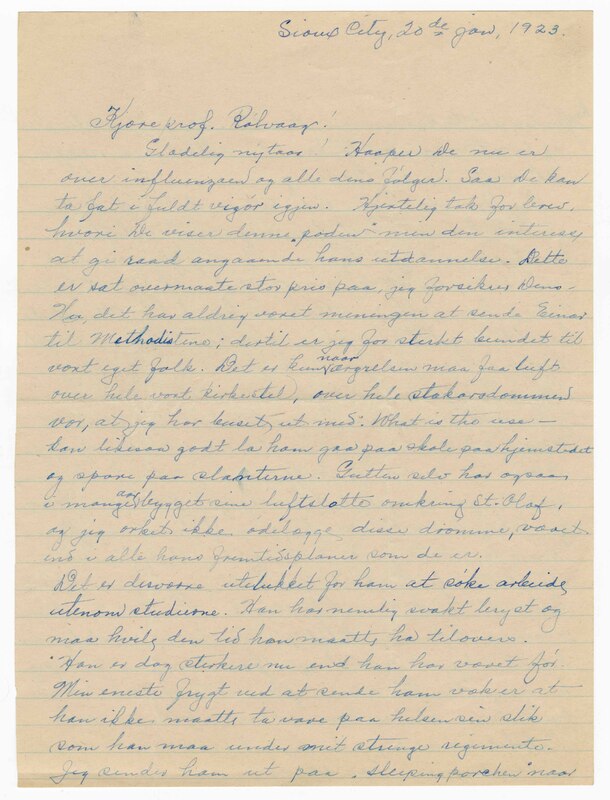 Sioux City, 20de jan, 1923.
Kjære prof. Rølvaag!
Gladelig nytaar! Haaper De nu er
over influenzaen og alle dens følger. Saa De kan
ta fat i fuldt vigør igjen. Hjertelig tak for brev,
hvori De viser denne "poden" min den interesse
at gi raad angaaende hans utdannelse. Dette
er sat overmaate stor pris paa, jeg forsikrer Dem.
Ho, det har aldrig været meningen at sende Einar
til Methodistene; dertil er jeg for sterkt bundet til
vort eget folk. Det er kun naar ærgrelsen maa faa luft
over hele vort kirkestel, over hele stakarsdommen
vor, at jeg har buset ut med: What is the use —
kan likesaa godt la ham gaa paa skole paa hjemstedet
og spare paa slanterne. Gutten selv har ogsaa
i mange aar bygget sine luftslotte omkring St. Olaf,
og jeg orket ikke ødelægge disse drømme, vævet
ind i alle hans fremtidsplaner som de er.
Det er desværre utelukket for ham at søke arbeide
utenom studierne. Han har nemlig svakt bryst og
maa hvile den tid han maatte ha tilovers.
Han er dog sterkere nu end han har været før.
Min eneste frygt ved at sende ham væk er at
han ikke maatte ta vare paa helsen sin slik
som han maa under mit strenge regimente.
Jeg sender ham ut paa "sleeping porchen" naar